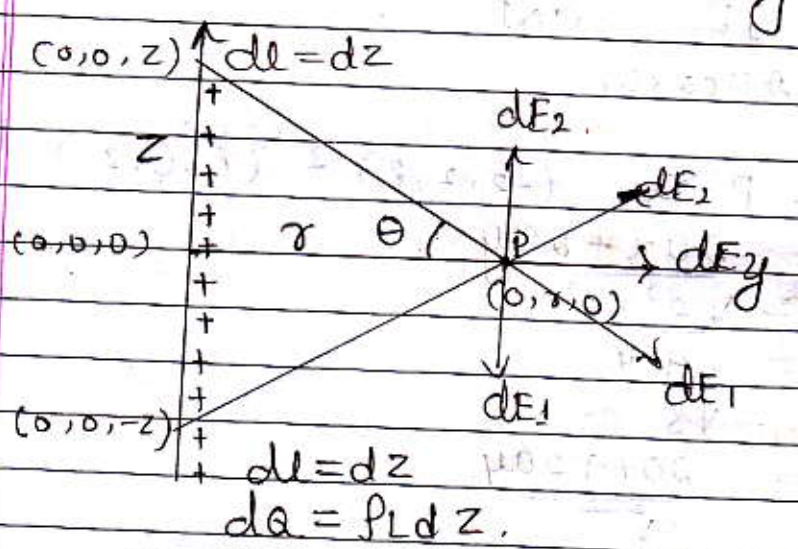 (0,0,z) dl = dz
dE2.
z
dE2
(0,0,0) r θ P dEy
(0,r,0)
dE1 dE1
(0,0,-z)
dl = dz
dQ = ρL dz.